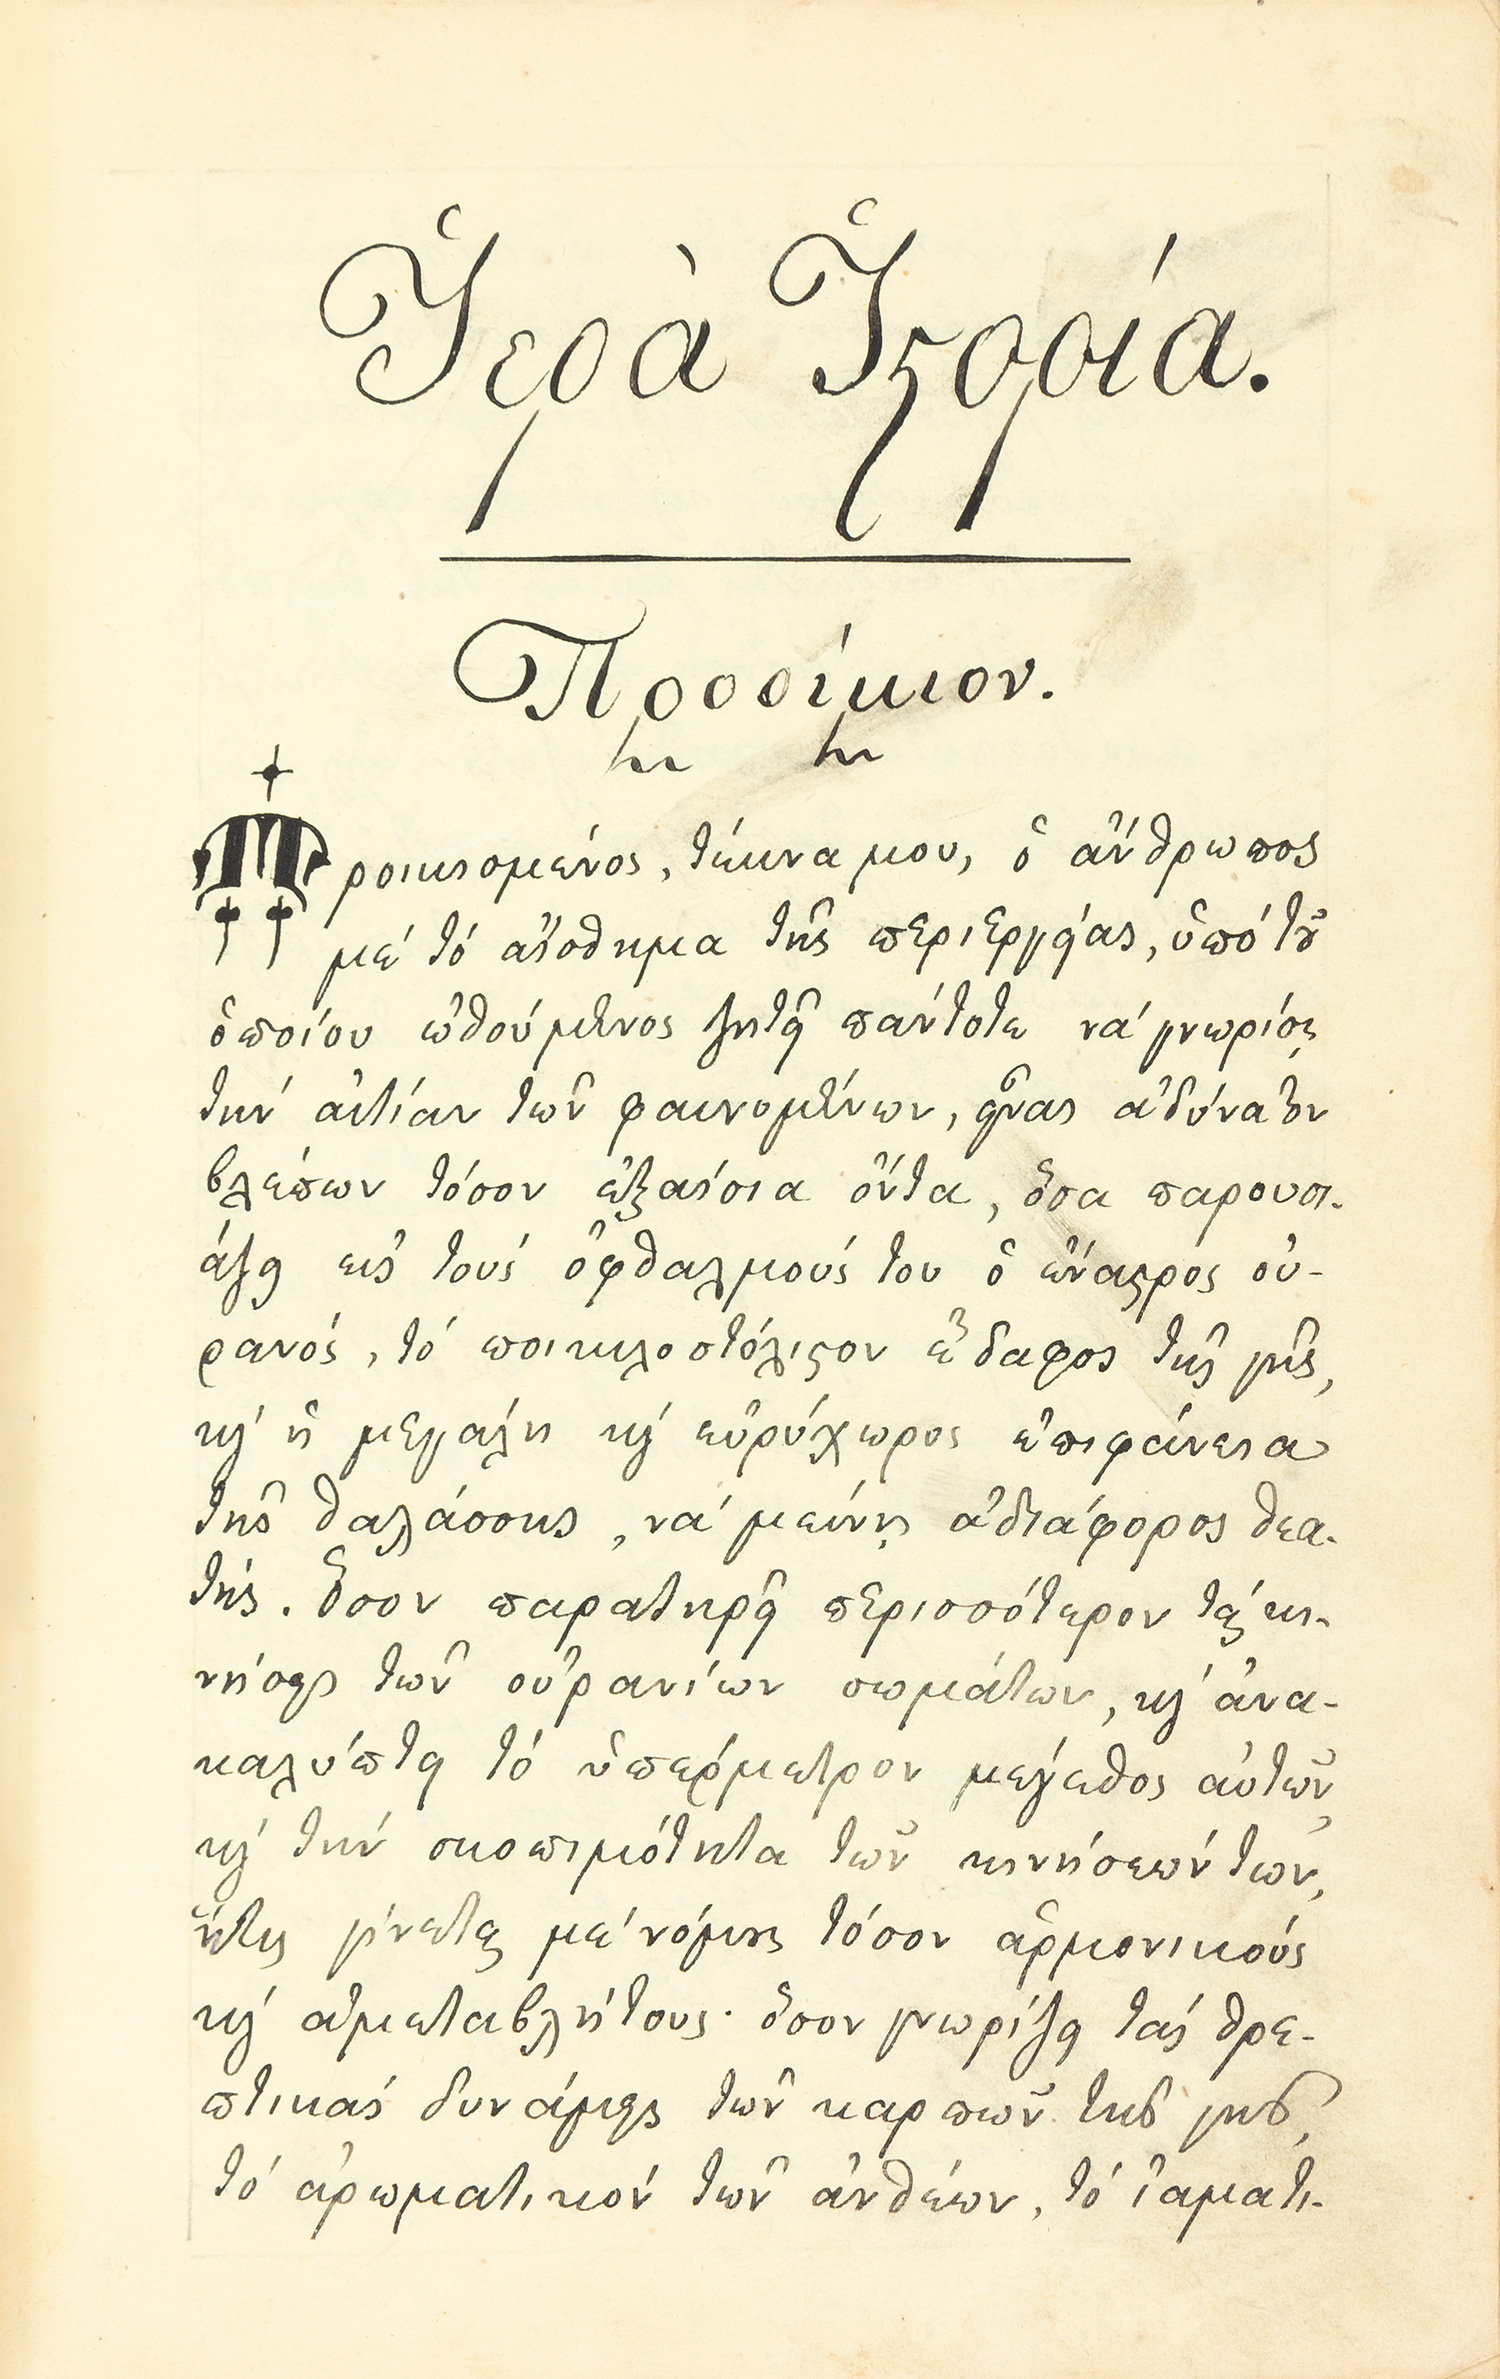 Ἱερὰ Ἱϛορία.
Προοίμιον.
Προικισομένος, τέκνα μου, ὁ ἄνθρωπος
μέ τό αἴσθημα τῆς περιεργείας, ὑπό τȣ͂
ὁποίου ὠθούμενος ζητεῖ πάντοτε νά γνωρίσῃ
τήν αἰτίαν τῶν φαινομένων, εἶναι ἀδύνατον
βλέπων τόσον ἐξαίσια ὄντα, ὅσα παρουσι-
άζει εἰς τούς ὀφθαλμούς του ὁ ἔναϛρος οὐ-
ρανός, τό ποικιλοστόλιϛον ἔδαφος τῆς γῆς,
ϗ ἡ μεγάλη ϗ εὐρύχωρος ἐπιφάνεια
τῆς θαλάσσης, νά μείνῃ ἀδιάφορος θεα-
τής. Ὅσον παρατηρεῖ περισσότερον τάς κι-
νήσεις τῶν οὐρανίων σωμάτων, ϗ ἀνα-
καλύπτει τό ὑπέρμετρον μέγεθος αὐτῶν
ϗ τήν σκοπιμότητα τῶν κινήσεών των,
ἥτις γίνεται μέ νόμους τόσον ἁρμονικούς
ϗ ἀμεταβλήτους· ὅσον γνωρίζει τάς θρε-
πτικάς δυνάμεις τῶν καρπῶν τῆς γῆς,
τό ἀρωματικόν τῶν ἀνθέων, τό ἰαματι-